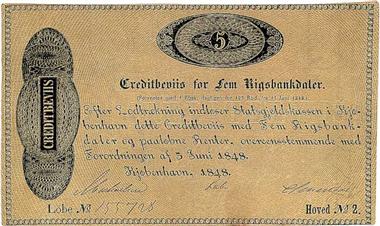 5
Creditbeviis for Fem Rigsbankdaler.
CREDITBEVIIS
Efter Lodtrækning indløser Statsgjeldskassen i Kjö-
benhavn dette Creditbeviis med Fem Rigsbank-
daler og paaløbne Renter, overeensstemmende med
Forordningen af 5 Juni 1848.
Kjöbenhavn, 1848.
Löbe № 155728
Hoved № 2.